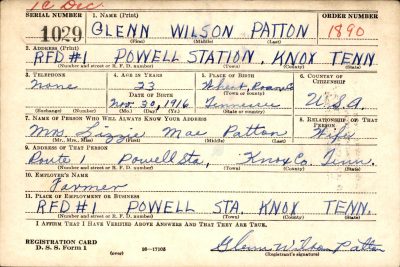 10 Dec
SERIAL NUMBER 1. NAME (Print) ORDER NUMBER
1029 GLENN WILSON PATTON 1890
(First) (Middle) (Last)
2. ADDRESS (Print)
RFD #1 POWELL STATION, KNOX TENN
(Number and street or R. F. D. number) (Town) (County) (State)
3. TELEPHONE 4. AGE IN YEARS 5. PLACE OF BIRTH 6. COUNTRY OF CITIZENSHIP
None 23 Wheat, Roane Co
DATE OF BIRTH (Town or county)
Nov. 30, 1916 Tennessee U.S.A.
(Exchange) (Number) (Mo.) (Day) (Yr.) (State or country)
7. NAME OF PERSON WHO WILL ALWAYS KNOW YOUR ADDRESS 8. RELATIONSHIP OF THAT PERSON
Mrs. Lizzie Mae Patton Wife
(Mr., Mrs., Miss) (First) (Middle) (Last)
9. ADDRESS OF THAT PERSON
Route 1 Powell Sta, Knox Co. Tenn.
(Number and street or R. F. D. number) (Town) (County) (State)
10. EMPLOYER'S NAME
Farmer
11. PLACE OF EMPLOYMENT OR BUSINESS
RFD #1 POWELL STA. KNOX TENN.
(Number and street or R. F. D. number) (Town) (County) (State)
I AFFIRM THAT I HAVE VERIFIED ABOVE ANSWERS AND THAT THEY ARE TRUE.
REGISTRATION CARD
D. S. S. Form 1 (over) 16-17105 Glenn Wilson Patton
(Registrant's signature)